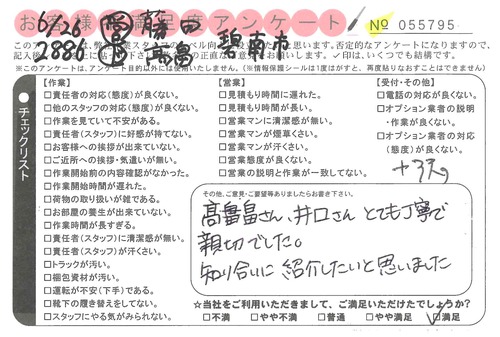 お客様満足度アンケート
№ 055795
6/26
2886
藤田
碧南市
※このアンケートは、アンケート目的以外には使用いたしません。(※情報保護シールは1度がすと、再度貼りなおすことはできません)
チェックリスト
【作業】
□責任者の対応(態度)が良くない。
□他のスタッフの対応(態度)が良くない。
□作業を見ていて不安がある。
□責任者(スタッフ)に好感が持てない。
□お客様への挨拶が出来ていない。
□ご近所への挨拶・気遣いが無い。
□作業開始前の内容確認がなかった。
□作業開始時間が遅れた。
□荷物の取り扱いが雑である。
□お部屋の養生が出来ていない。
□作業時間が長すぎる。
□責任者(スタッフ)に清潔感が無い。
□責任者(スタッフ)が汗くさい。
□トラックが汚い。
□梱包資材が汚い。
□運転が不安(下手)である。
□靴下の履き替えをしてない。
□スタッフにやる気がみられない。
【営業】
□見積もり時間に遅れた。
□見積もり時間が長い。
□営業マンに清潔感が無い。
□営業マンが煙草くさい。
□営業マンが汗くさい。
□営業態度が良くない。
□営業の説明と作業が一致してない。
【受付・その他】
□電話の対応が良くない。
□オプション業者の説明
・作業が良くない。
□オプション業者の対応
(態度)が良くない。
その他、ご意見・ご要望等ありましたらお書き下さい。
さん、井口さん とても丁寧で
親切でした。
知り合いに 紹介したいと思いました
☆当社をご利用いただきまして、ご満足いただけたでしょうか?
□不満 □やや不満 □普通 □やや満足 □満足